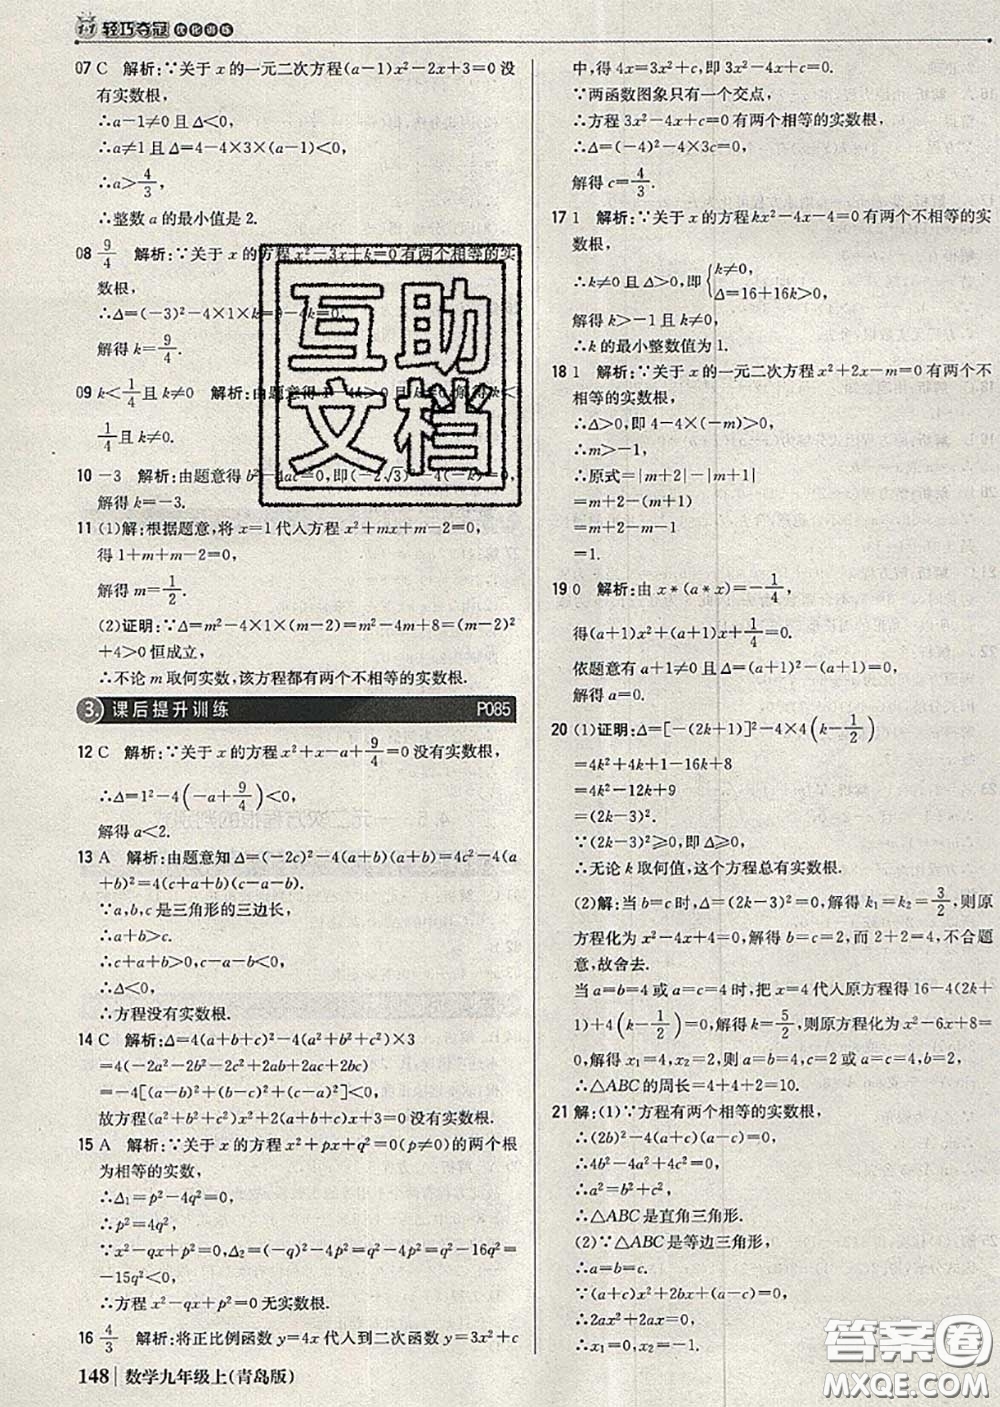 1+1 轻巧夺冠 优化训练
07 C 解析:∵关于 x 的一元二次方程(a−1)x²−2x+3=0 没
有实数根,
∴a−1≠0 且 Δ<0,
∴a≠1 且 Δ=4−4×3×(a−1)<0,
∴a>4/3,
∴整数 a 的最小值是 2.
08 9/4 解析:∵关于 x 的方程 x²−3x+k=0 有两个相等的实
数根,
∴Δ=(−3)²−4×1×k=9−4k=0,
解得 k=9/4.
09 k<1/4且 k≠0 解析:由题意得 1−4k>0 且 k≠0,解得 k<
1/4且 k≠0.
10 −3 解析:由题意得 b²−4ac=0,即(−2√3)²−4(−k)=0,
解得 k=−3.
11 (1)解:根据题意,将 x=1 代入方程 x²+mx+m−2=0,
得 1+m+m−2=0,
解得 m=1/2.
(2)证明:∵Δ=m²−4×1×(m−2)=m²−4m+8=(m−2)²
+4>0 恒成立,
∴不论 m 取何实数,该方程都有两个不相等的实数根.
3. 课后提升训练 P085
12 C 解析:∵关于 x 的方程 x²+x−a+9/4=0 没有实数根,
∴Δ=1²−4(−a+9/4)<0,
解得 a<2.
13 A 解析:由题意知 Δ=(−2c)²−4(a+b)(a+b)=4c²−4(a
+b)²=4(a+b+c)(c−a−b).
∵a,b,c 是三角形的三边长,
∴a+b>c.
∴c+a+b>0,c−a−b<0,
∴Δ<0,
∴方程没有实数根.
14 C 解析:Δ=4(a+b+c)²−4(a²+b²+c²)×3
=4(−2a²−2b²−2c²+2ab+2ac+2bc)
=−4[(a−b)²+(b−c)²+(c−a)²]<0,
故方程(a²+b²+c²)x²+2(a+b+c)x+3=0 没有实数根.
15 A 解析:∵关于 x 的方程 x²+px+q²=0(p≠0)的两个根
为相等的实数,
∴Δ₁=p²−4q²=0,
∴p²=4q²,
∵x²−qx+p²=0,Δ₂=(−q)²−4p²=q²−4p²=q²−16q²=
−15q²<0,
∴方程 x²−qx+p²=0 无实数根.
16 4/3 解析:将正比例函数 y=4x 代入到二次函数 y=3x²+c
148 数学九年级上(青岛版)
中,得 4x=3x²+c,即 3x²−4x+c=0.
∵两函数图象只有一个交点,
∴方程 3x²−4x+c=0 有两个相等的实数根,
∴Δ=(−4)²−4×3c=0,
解得 c=4/3.
17 1 解析:∵关于 x 的方程 kx²−4x−4=0 有两个不相等的实
数根,
∴k≠0 且 Δ>0,即{k≠0,
Δ=16+16k>0,
解得 k>−1 且 k≠0,
∴k 的最小整数值为 1.
18 1 解析:∵关于 x 的一元二次方程 x²+2x−m=0 有两个不
相等的实数根,
∴Δ>0,即 4−4×(−m)>0,
∴m>−1,
∴原式=|m+2|−|m+1|
=m+2−(m+1)
=m+2−m−1
=1.
19 0 解析:由 x*(a*x)=−1/4,
得(a+1)x²+(a+1)x+1/4=0.
依题意有 a+1≠0 且 Δ=(a+1)²−(a+1)=0,
解得 a=0.
20 (1)证明:Δ=[−(2k+1)]²−4×4(k−1/2)
=4k²+4k+1−16k+8
=4k²−12k+9
=(2k−3)².
∵(2k−3)²≥0,即 Δ≥0,
∴无论 k 取何值,这个方程总有实数根.
(2)解:当 b=c 时,Δ=(2k−3)²=0,解得 k₁=k₂=3/2,则原
方程化为 x²−4x+4=0,解得 b=c=2,而 2+2=4,不合题
意,故舍去.
当 a=b=4 或 a=c=4 时,把 x=4 代入原方程得 16−4(2k+
1)+4(k−1/2)=0,解得 k=5/2,则原方程化为 x²−6x+8=
0,解得 x₁=4,x₂=2,则 a=b=4,c=2 或 a=c=4,b=2,
∴△ABC 的周长=4+4+2=10.
21 解:(1)∵方程有两个相等的实数根,
∴(2b)²−4(a+c)(a−c)=0,
∴4b²−4a²+4c²=0,
∴a²=b²+c²,
∴△ABC 是直角三角形.
(2)∵△ABC 是等边三角形,
∴a=b=c.
∵(a+c)x²+2bx+(a−c)=0,
∴2ax²+2ax=0,
∴x₁=0,x₂=−1.
互助
文档
答案圈
MXQE.COM